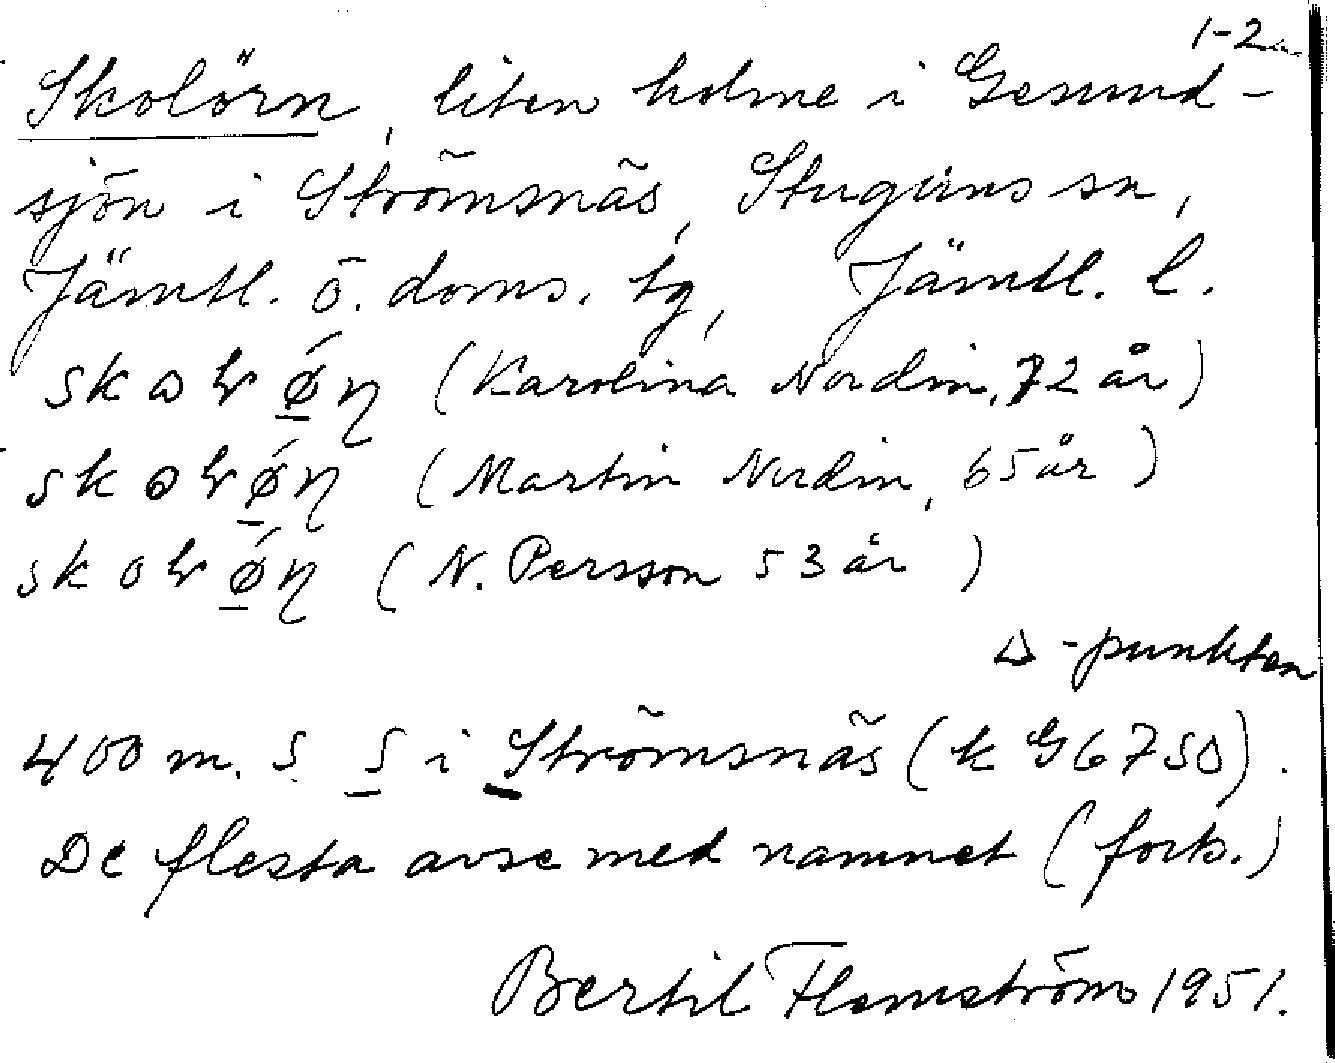 1-2
Skolörn, liten holme i Gesund-
sjön i Strömsnäs, Stuguns sn,
Jämtl. ö. doms. tg, Jämtl. l.
(Karolina Nordin, 72 år)
(Martin Nordin, 65 år)
(N. Persson 53 år)
Δ-punkten
400 m. S S i Strömsnäs (k G6750).
De flesta avse med namnet (forts.)
Bertil Flemström 1951.